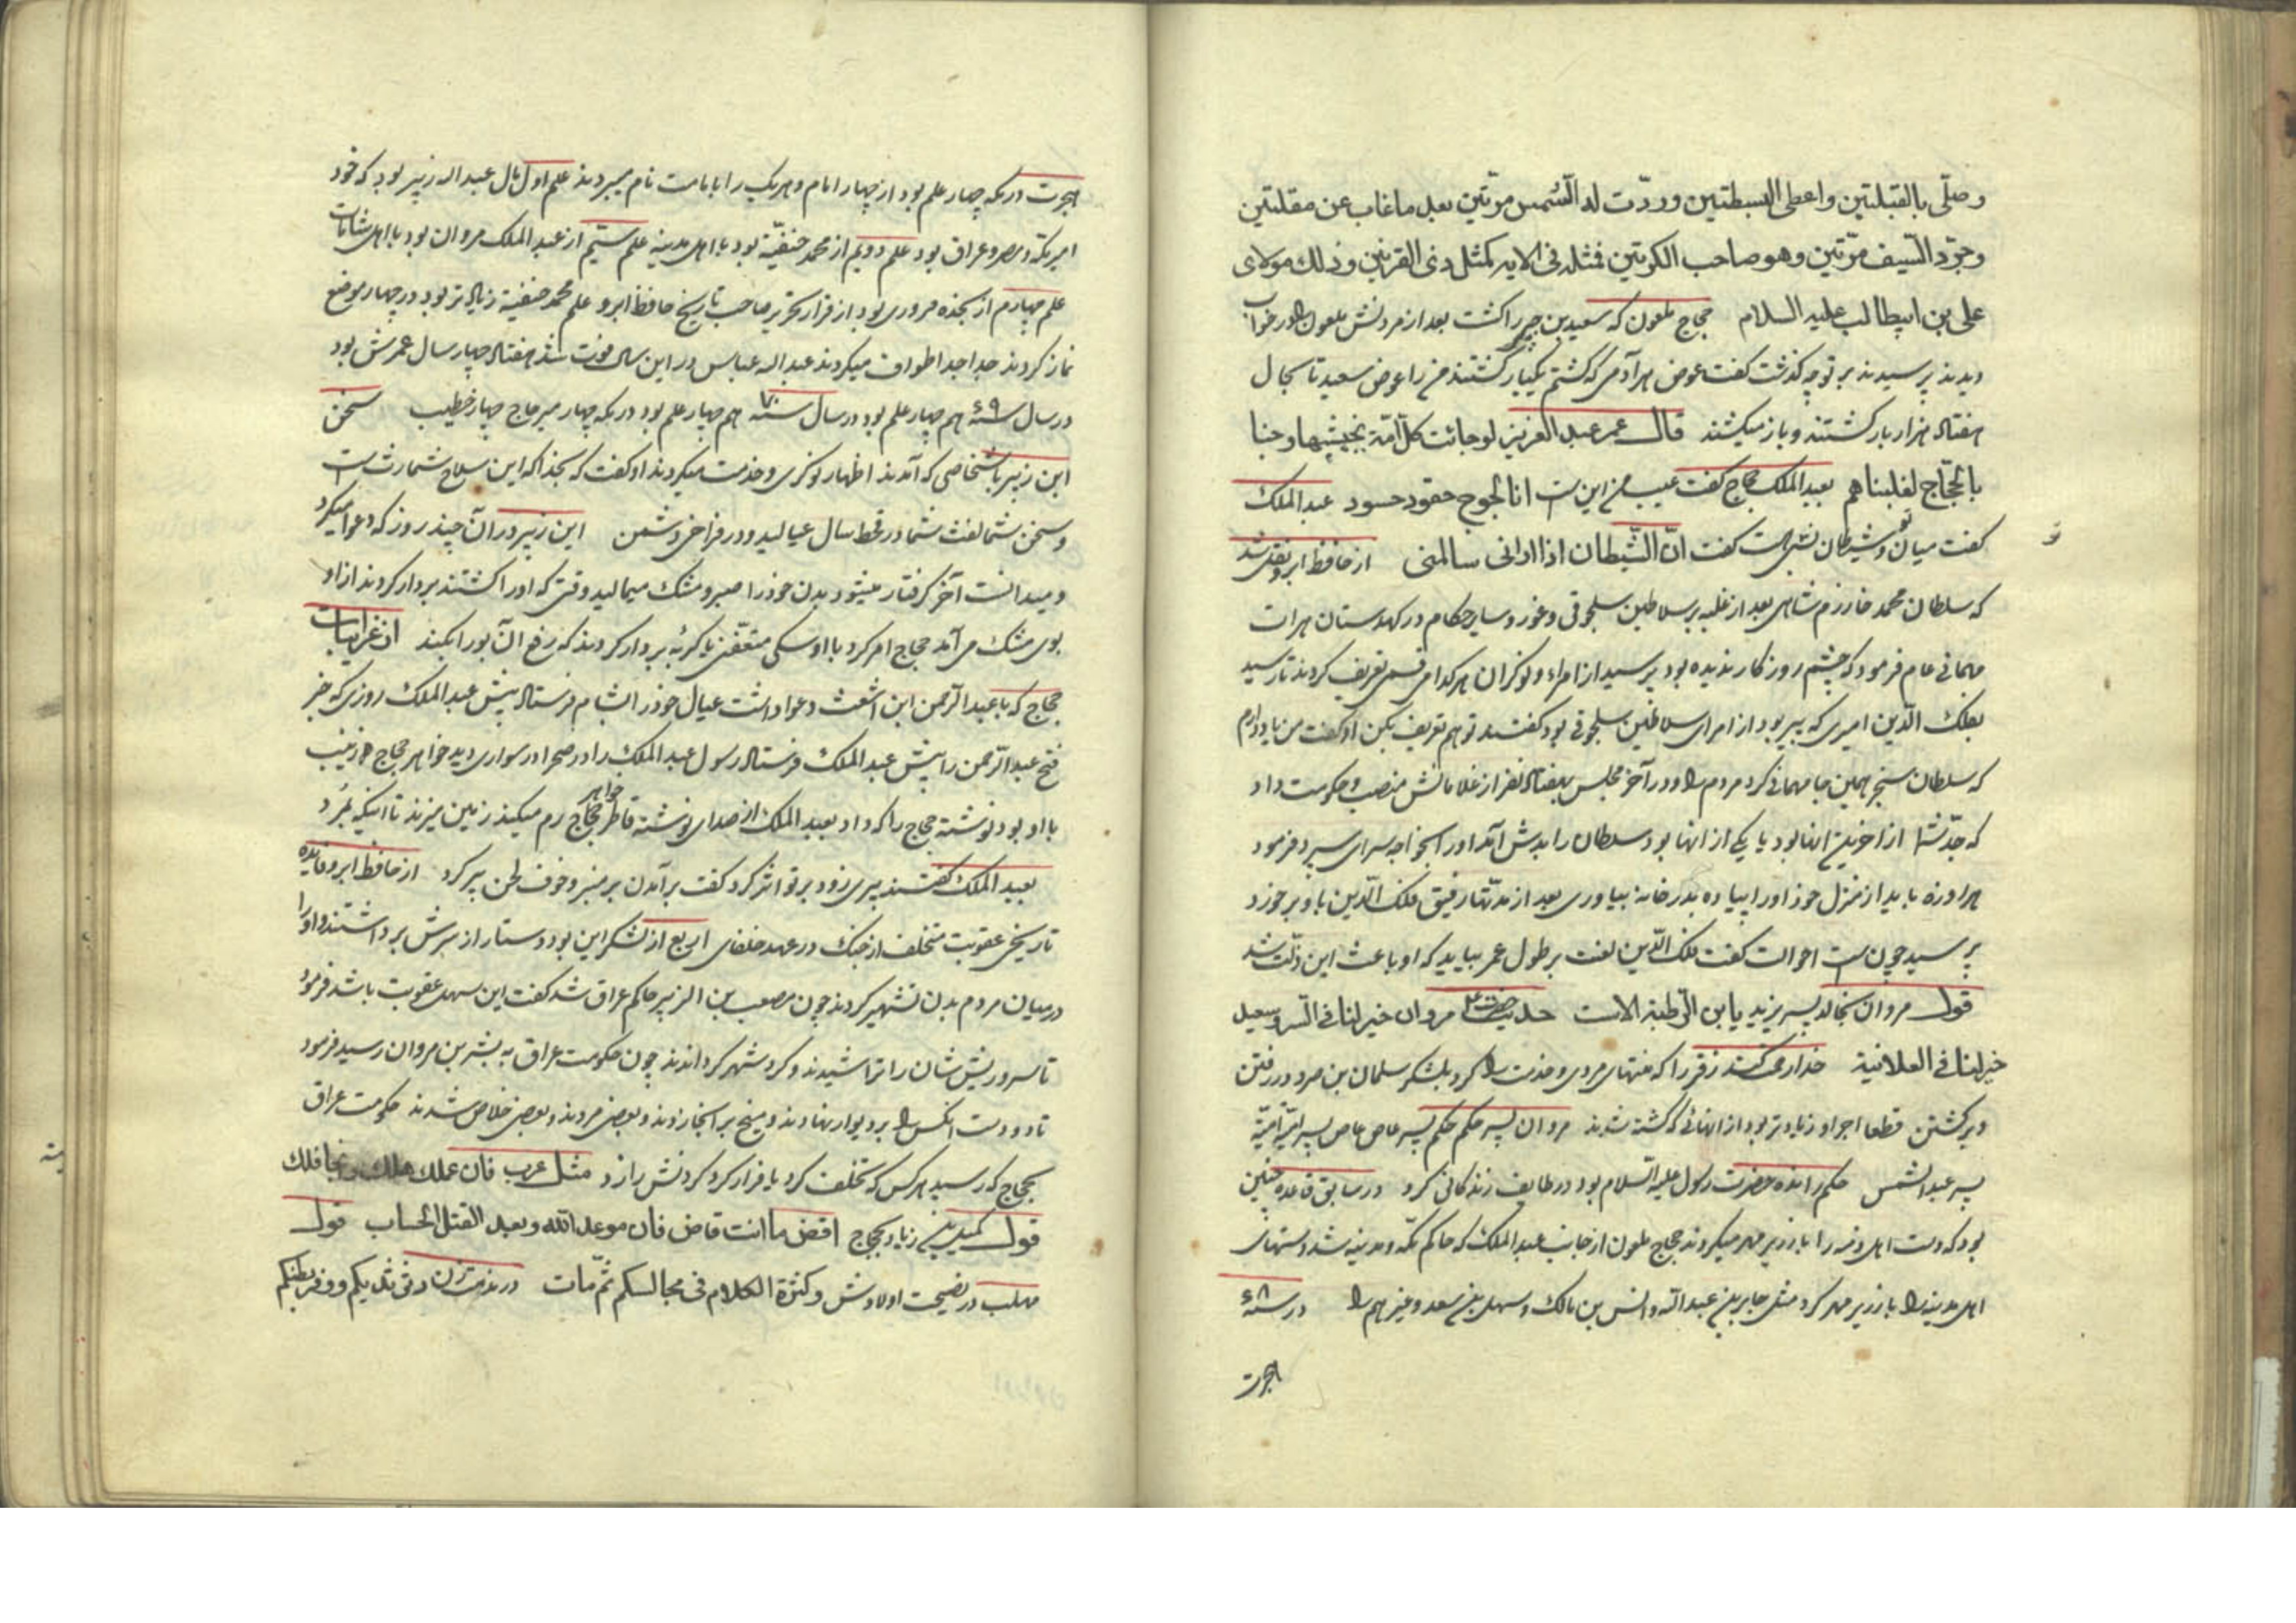 وصلّی بالقبلتین واعطی البسطتین وردّت له الشمس مرّتین بعد ما غاب عن مقلتین
وجرّد السّیف مرّتین وهو صاحب الکرّتین فمثله فی الایه کمثل ذی القرنین وذلک مولای
علی بن ابیطالب علیه السلام حجاج ملعون که سعید بن جبیر را کشت بعد از مردنش ملعون را در خواب
دیدند پرسیدند بر تو چه گذشت گفت عوض هر آدمی که کشتم یکبار کشتند مرا عوض سعید تا بحال
هفتاد هزار بار کشتند و باز میکشند قال عمر عبد العزیز لو جائت کل امّة بخبیثها وجئنا
بالحجّاج لغلبناهم بعبد الملک حجاج گفت عیب من این است انا لجوج حقود حسود عبد الملک
گفت میان تو و شیطان نسبتی هست گفت انّ الشّیطان اذا ادانی سالمنی از حافظ ابرو نقل شد
که سلطان محمد خارزم شاهی بعد از غلبه بر سلاطین سلجوقی و غور و سایر حکام در کهدستان هرات
مهمانی عام فرمود که چشم روزگار ندیده بود پرسید از امراء و نوکران هر کدامی قسمی تعریف کردند تا رسید
بفلک الدّین امیری که پیر بود از امرای سلاطین سلجوقی بود گفتند تو هم تعریف بکن او گفت من یاد دارم
که سلطان سنجر همین جا مهمانی کرد مردم را و در آخر مجلس بهفتاد نفر از غلامانش منصب و حکومت داد
که جدّ شما از اخرین انها بود یا یکی از انها بود سلطان را بدش آمد او را بخواجه سرای سپرد فرمود
هر روزه باید از منزل خود او را پیاده بدر خانه بیاوری بعد از مدّتها رفیق فلک الدّین باو بر خورد
پرسید چون است احوالت گفت فلک الدّین لعنت بر طول عمر بیاید که او باعث این ذلّت شد
قول مروان بخالد پسر یزید یابن الرّطبة الاست حدیث حضرت مروان خیر لنا فی السّر وسعید
خیر لنا فی العلانیة خدا رحمت کند زفر را که منتهای مردی و خدمت را کرد بلشکر سلمان بن صرد در رفتن
و برگشتن قطعا اجر او زیادتر بود از انهائی که کشته شدند مروان پسر حکم حکم پسر عاص عاص پسر امیّه امیّه
پسر عبد الشمس حکم رانده حضرت رسول علیه السّلام بود در طایف زندگانی کرد در سابق قاعده چنین
بود که دست اهل ذمه را با زریر مهر میکردند حجاج ملعون از جانب عبد الملک که حاکم مکّه و مدینه شد دستهای
اهل مدینه را با زریر مهر کرد مثل جابر بن عبد الله و انس بن مالک و سهل بن سعد و غیر هم را در سنه ۶۸
هجرت
هجرت در مکه چهار علم بود از چهار امام و هر یک را بامامت نام میبردند علم اول مال عبد اله زبیر بود که خود
امیر مکه و مصر و عراق بود علم دویم از محمد حنفیّة بود با اهل مدینه علم سیّم از عبد الملک مروان بود با اهل شامات
علم چهارم از نجده حروری بود از قرار تحریر صاحب تاریخ حافظ ابرو علم محمد حنفیة زیادتر بود در چهار موضع
نماز کردند جدا جدا طواف میکردند عبد اله عباس در این سال فوت شد هفتاد چهار سال عمرش بود
در سال سنه ۶۹ هم چهار علم بود در سال سنه ۷۰ هم چهار علم بود در مکه چهار میر حاج چهار خطیب سخن
ابن زبیر باشخاصی که آمدند اظهار نوکری و خدمت میکردند او گفت که بخدا که این سلاح شما رث است
و سخن شما لغث شما در قحط سال عیالید و در فراخی دشمن ابن زبیر در آن چند روز که دعوا میکرد
و میدانست آخر گرفتار میشود بدن خود را صبر و مشک میمالید وقتی که او را کشتند بردار کردند از او
بوی مشک می آمد حجاج امر کرد با او سگی متعفّن یا گربه بردار کردند که رفع ان بو را بکند از غرایبات
حجاج که با عبد الرّحمن ابن اشعث دعوا داشت عیال خود را بشام فرستاد پیش عبد الملک روزی که خبر
فتح عبد الرّحمن را پیش عبد الملک فرستاد رسول عبد الملک را در صحرا در سواری دید خواهر حجاج هم زینب
با او بود نوشته حجاج را که داد بعبد الملک از صدای نوشته قاطر خواهر حجاج رم میکند زمین میزند تا اینکه بمرد
بعبد الملک گفتند پیری زود بر تو اثر کرد گفت بر آمدن بر منبر و خوف لحن پیر کرد از حافظ ابرو فایده
تاریخی عقوبت متخلف از جنگ در عهد خلفای اربع از لشکر این بود دستار از سرش بر داشتند و او را
در میان مردم بدن تشهیر کردند چون مصعب بن الزبیر حاکم عراق شد گفت این سهل عقوبت باشد فرمود
تا سر و ریش شان را تراشیدند و گرد شهر گرداندند چون حکومت عراق به بشر بن مروان رسید فرمود
تا دو دست انکس را بر دیوار نهادند و میخ بر انجا زدند و بعضی مردند و بعضی خلاص شدند حکومت عراق
بحجاج که رسید هر کس که تخلف کرد یا فرار کرد گردنش را زد مثل عرب فان هلک هلک ونجا فلک
قول کمیل بن زیاد بحجاج اقض ما انت قاض فان موعد الله وبعد القتل الحساب قول
مهلب در نصیحت اولادش وکثرة الکلام فی مجالسکم ثمّ مات در مذمت زن دقی ثدیکم ووفر بطنکم